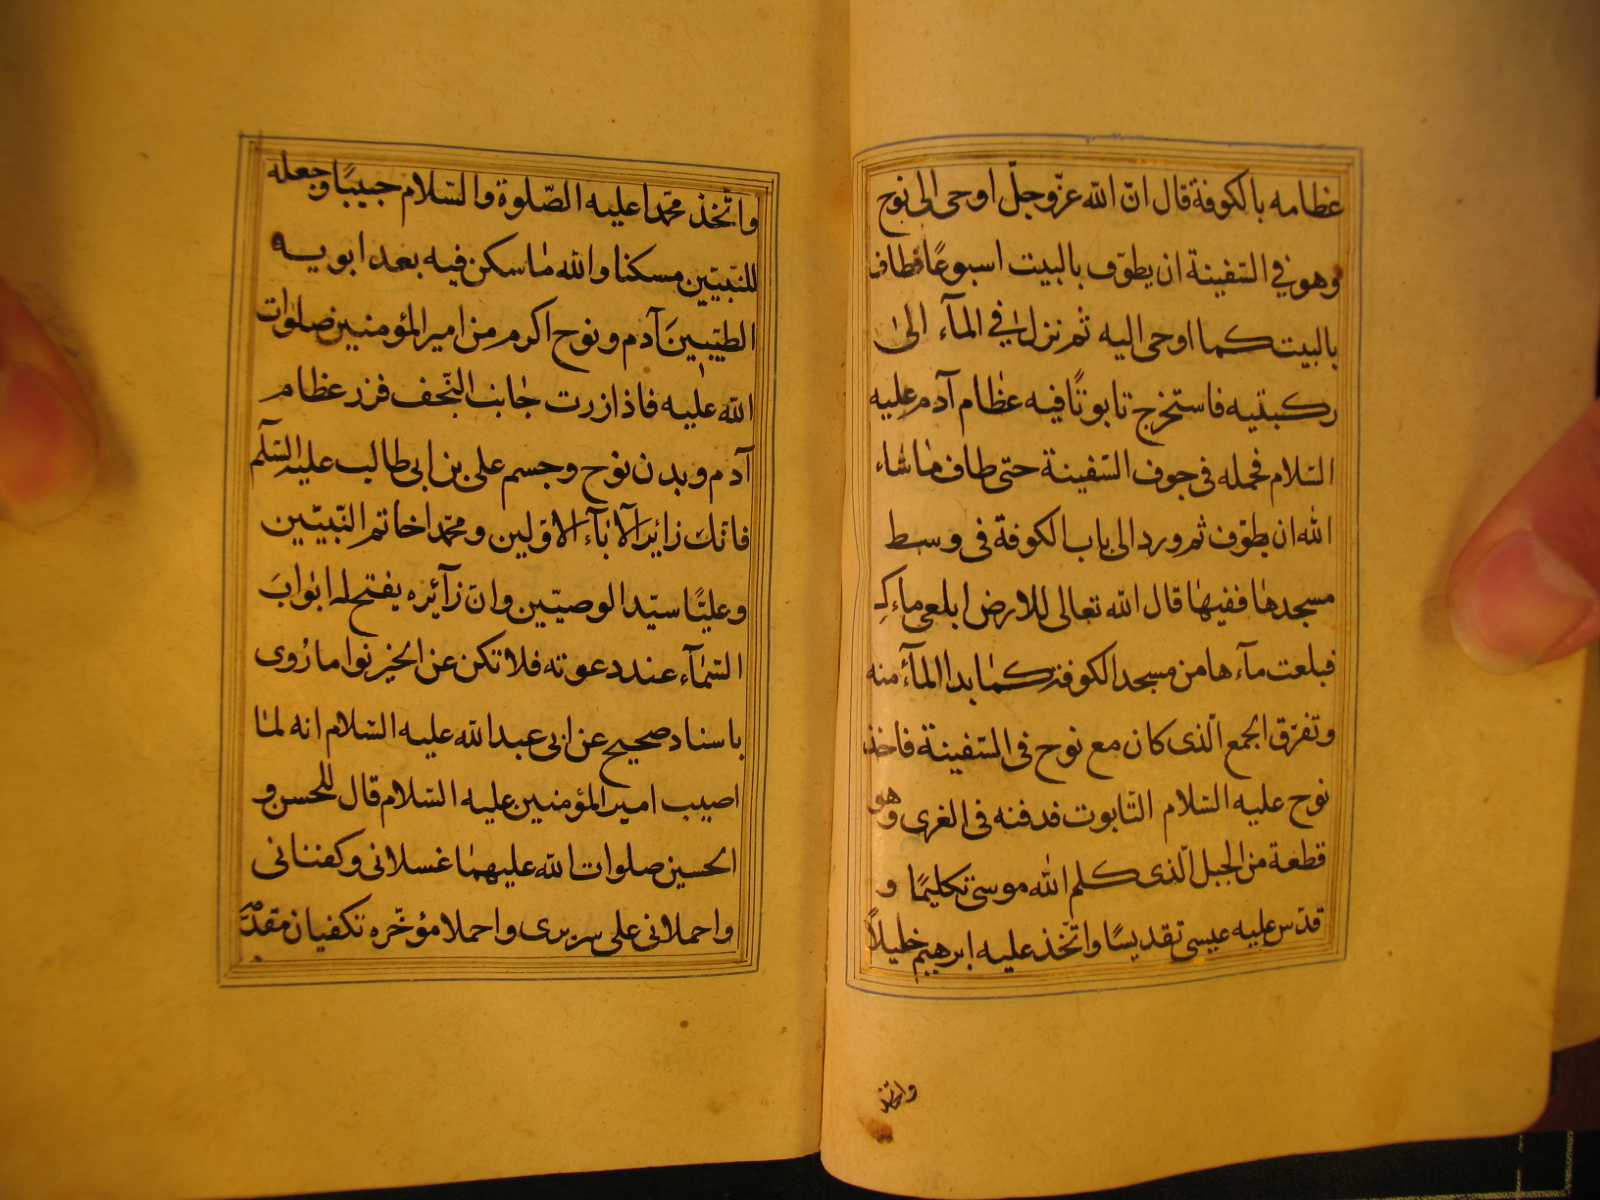 عظامه بالكوفة قال انّ الله عزّوجلّ اوحى الى نوح
وهو في السّفينة ان يطوّف بالبيت اسبوعًا فطاف
بالبيت كما اوحى اليه ثم نزل في المآء الىٰ
ركبتيه فاستخرج تابوتًا فيه عظام آدم عليه
السّلام فحمله فى جوف السّفينة حتى طاف ما شاء
الله ان يطوّف ثم ورد الى باب الكوفة فى وسط
مسجدها ففيها قال الله تعالى للارض ابلعى ماءكِ
فبلعت مآءها من مسجد الكوفة كما بدا المآء منه
وتفرّق الجمع الّذى كان مع نوح فى السّفينة فاخذ
نوح عليه السّلام التّابوت فدفنه فى الغرى وهو
قطعة من الجبل الّذى كلم الله موسىٰ تكليمًا و
قدّس عليه عيسى تقديسًا واتّخذ عليه ابرهيم خليلاً
واتّخذ
واتّخذ محمّدا عليه الصّلوة والسّلام حبيبًا وجعله
للنّبيّين مسكنا والله ما سكن فيه بعد ابويه
الطيّبينَ آدم ونوح اكرم من امير المؤمنين صلوات
الله عليه فاذا زرت جانب النّجف فزر عظام
آدم وبدن نوح وجسم على بن ابى طالب عليه السّلم
فانّك زائر الآبآء الاوّلين ومحمّدا خاتم النّبيّين
وعليّا سيّد الوصيّين وانّ زآئره يفتح له ابوابَ
السّمآء عند دعوته فلا تكن عن الخير نواما رُوى
باسناد صحيح عن ابى عبد الله عليه السّلام انه لمّا
اصيب امير المؤمنين عليه السّلام قال للحسن و
الحسين صلوات الله عليهما غسلانى وكفنانى
واحملانى على سريرى واحملا مؤخّره تكفيان مقدّمه